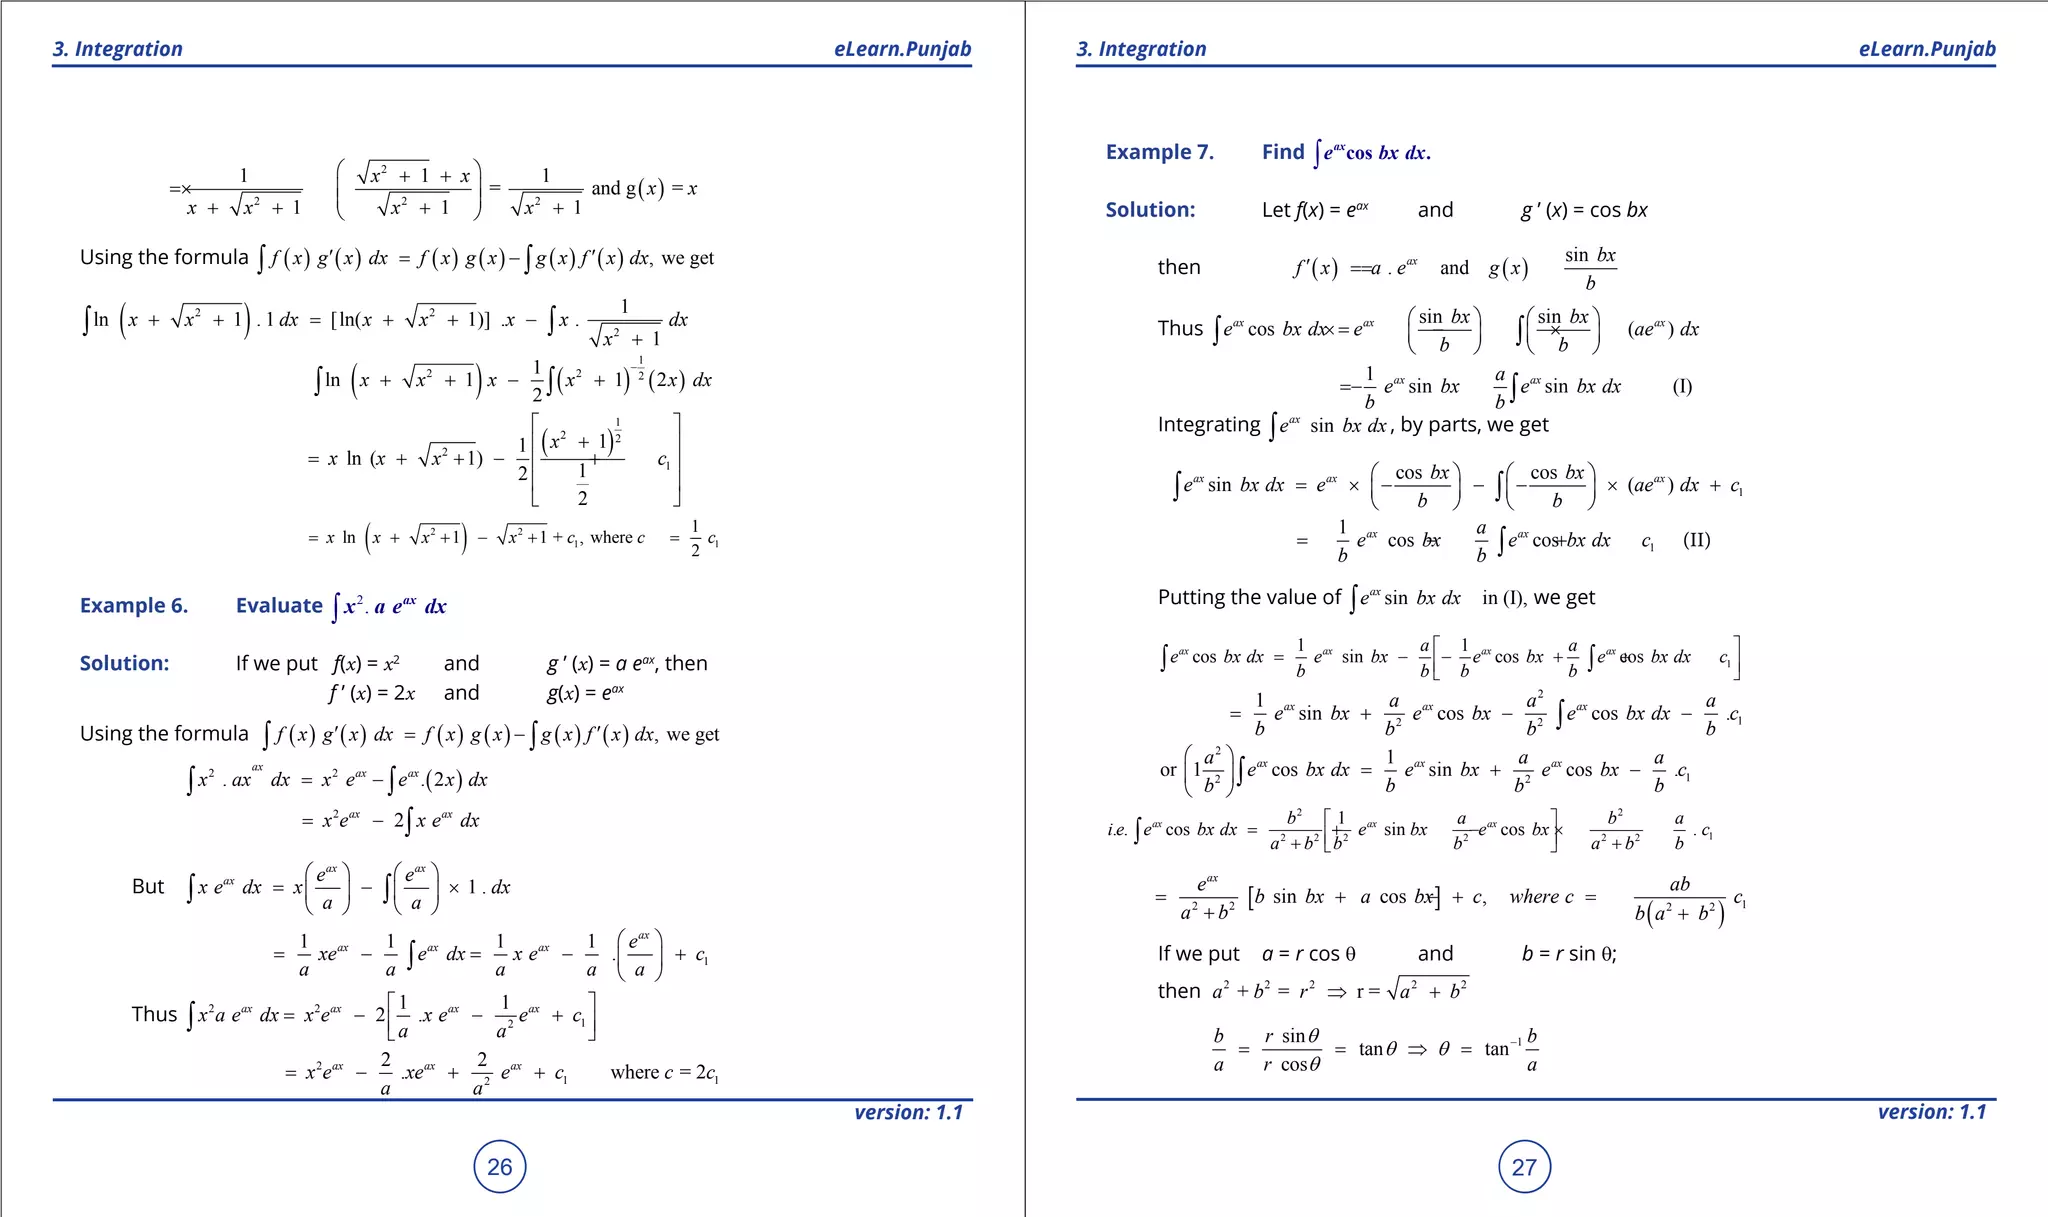 3. Integration eLearn.Punjab
=× 1/(x + √(x² + 1)) ((√(x² + 1) + x)/√(x² + 1)) = 1/√(x² + 1) and g(x) = x
Using the formula ∫f(x) g′(x) dx = f(x) g(x) − ∫g(x) f′(x) dx, we get
∫ln (x + √(x² + 1)) . 1 dx = [ln(x + √(x² + 1)] .x − ∫x . 1/√(x² + 1) dx
∫ln (x + √(x² + 1)) x − 1/2 ∫(x² + 1)^(−1/2) (2x) dx
= x ln (x + √(x² +1)) − 1/2 [(x² + 1)^(1/2) / (1/2) + c₁]
= x ln (x + √(x² +1)) − √(x² +1) + c₁, where c = 1/2 c₁
Example 6. Evaluate ∫x². a e^(ax) dx
Solution: If we put f(x) = x² and g ′ (x) = a e^(ax), then
f ′ (x) = 2x and g(x) = e^(ax)
Using the formula ∫f(x) g′(x) dx = f(x) g(x) − ∫g(x) f′(x) dx, we get
∫x² . ax^(ax) dx = x² e^(ax) − ∫e^(ax).(2x) dx
= x²e^(ax) − 2∫x e^(ax) dx
But ∫x e^(ax) dx = x(e^(ax)/a) − ∫(e^(ax)/a) × 1 . dx
= 1/a xe^(ax) − 1/a ∫e^(ax) dx = 1/a x e^(ax) − 1/a .(e^(ax)/a) + c₁
Thus ∫x²a e^(ax) dx = x²e^(ax) − 2[1/a .x e^(ax) − 1/a² e^(ax) + c₁]
= x²e^(ax) − 2/a .xe^(ax) + 2/a² e^(ax) + c₁ where c = 2c₁
version: 1.1
26
3. Integration eLearn.Punjab
Example 7. Find ∫e^(ax)cos bx dx.
Solution: Let f(x) = e^(ax) and g ′ (x) = cos bx
then f′(x) ==a . e^(ax) and g(x) sin bx/b
Thus ∫e^(ax) cos bx dx×= e^(ax) (sin bx/b) − ∫(sin bx/b) × (ae^(ax)) dx
=− 1/b e^(ax) sin bx a/b ∫e^(ax) sin bx dx (I)
Integrating ∫e^(ax) sin bx dx, by parts, we get
∫e^(ax) sin bx dx = e^(ax) × (− cos bx/b) − ∫(− cos bx/b) × (ae^(ax)) dx + c₁
= 1/b e^(ax) cos bx − a/b ∫e^(ax) cos+bx dx c₁ (II)
Putting the value of ∫e^(ax) sin bx dx in (I), we get
∫e^(ax) cos bx dx = 1/b e^(ax) sin bx − a/b [− 1/b e^(ax) cos bx + a/b ∫e^(ax) +cos bx dx c₁]
= 1/b e^(ax) sin bx + a/b² e^(ax) cos bx − a²/b² ∫e^(ax) cos bx dx − a/b .c₁
or (1 a²/b²)∫e^(ax) cos bx dx = 1/b e^(ax) sin bx + a/b² e^(ax) cos bx − a/b .c₁
i.e. ∫e^(ax) cos bx dx = b²/(a² + b²) [1/b² + e^(ax) sin bx a/b² − e^(ax) cos bx] × b²/(a² + b²) a/b . c₁
= e^(ax)/(a² + b²) [b sin bx + a cos bx−] + c, where c = ab/(b(a² + b²)) c₁
If we put a = r cos θ and b = r sin θ;
then a² + b² = r² ⇒ r = √(a² + b²)
b/a = r sinθ/r cosθ = tanθ ⇒ θ = tan⁻¹ b/a
version: 1.1
27